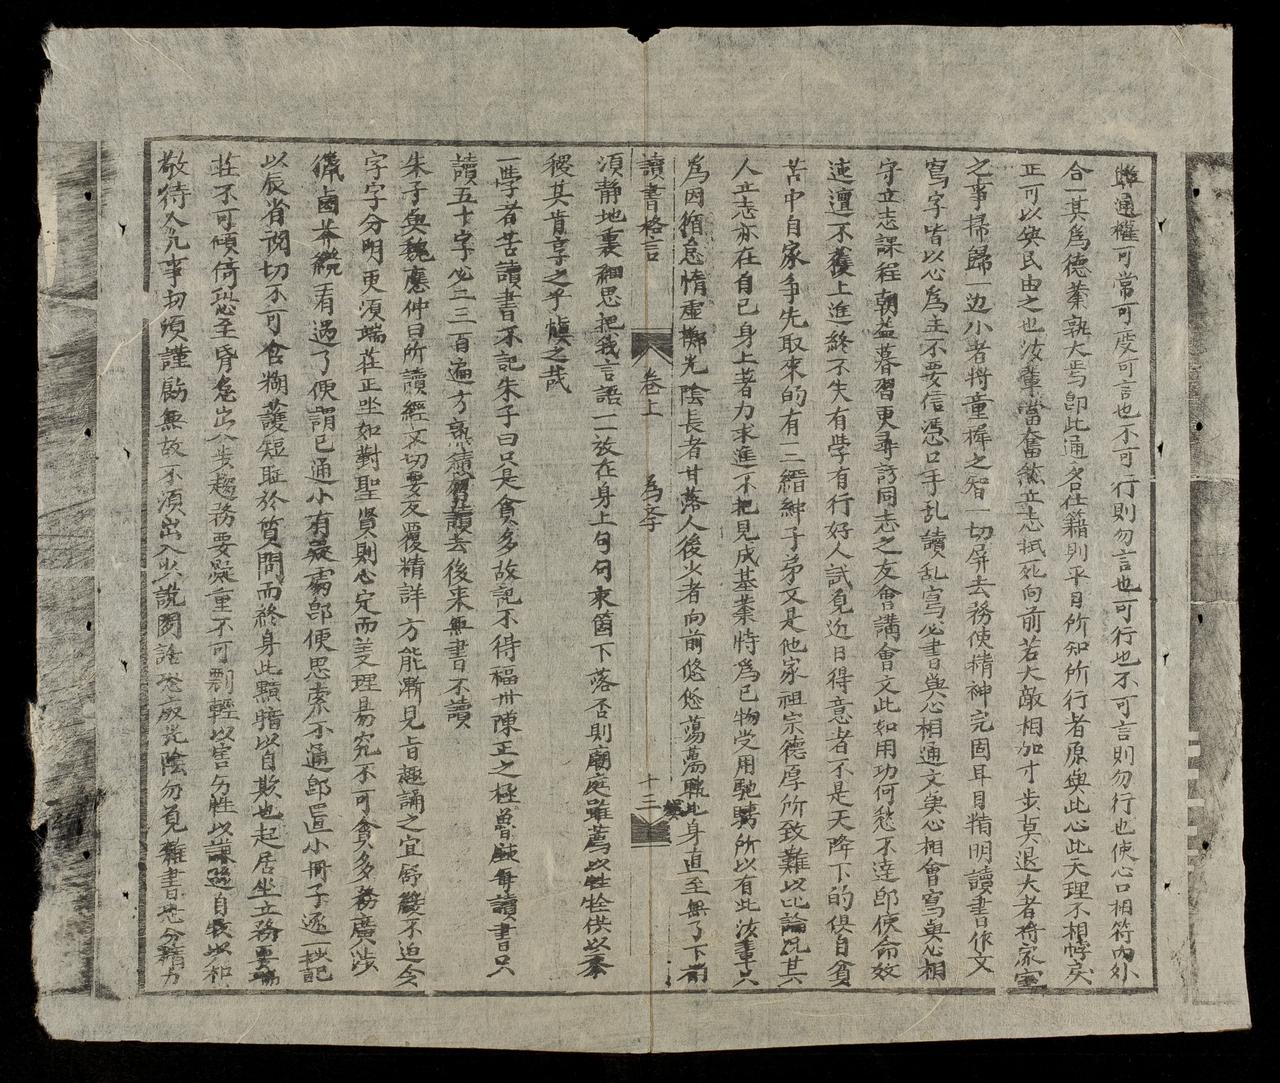 雖通權可常可變可言也不可行則勿言也可行也不可言則勿行也使心口相符內外
合一其為德業孰大焉卽此通名仕籍則平日所知所行者原與此心此天理不相悖戾
正可以與民由之也汝輩當奮然立志拭死向前若大敵相加寸步莫退大者將家室
之事掃歸一边小者將童穉之習一切屏去務使精神完固耳目精明讀書作文
寫字皆以心為主不要信憑口手乱讀乱寫必書與心相通文與心相會寫與心相
守立志課程朝益暮習更尋訪同志之友會講會文此如用功何愁不達卽使命效
迍邅不獲上進終不失有學有行好人試見近日得意者不是天降下的俱自貧
苦中自家争先取來的有一二縉紳子弟又是他家祖宗德厚所致難以比論况其
人立志亦在自己身上著力求進不把見成基業恃為己物受用馳騁所以有此汝輩只
為因循怠惰虛擲光陰長者甘落人後少者向前悠悠蕩蕩職此身直至無了下前
讀書格言 卷上 為學 十三
須靜地裏細思把我言語一一放在身上句句東箇下落否則廟庭雖薦以牲牷供以黍
稷其肯享之乎慎之哉
一學者苦讀書不記朱子曰只是貪多故記不得福州陳正之極魯鈍每讀書只
讀五十字必二三百遍方熟積習讀去後来無書不讀
朱子與魏應仲曰所讀經文切要反覆精詳方能漸見旨趣誦之宜舒緩不迫令
字字分明更須端莊正坐如對聖賢則心定而義理易究不可貪多務廣涉
獵鹵莽纔看過了便謂已通小有疑處卽便思索不通卽置小冊子逐一抄記
以辰省閲切不可含糊護短耻於質問而終身此黯暗以自欺也起居坐立務要端
莊不可傾倚恐至昏怠出入步趨務要凝重不可剽輕以害匀性以謙遜自牧以和
敬待人凡事切須謹飭無故不須出入少說閑話恐廢光陰勿見雜書恐分精力